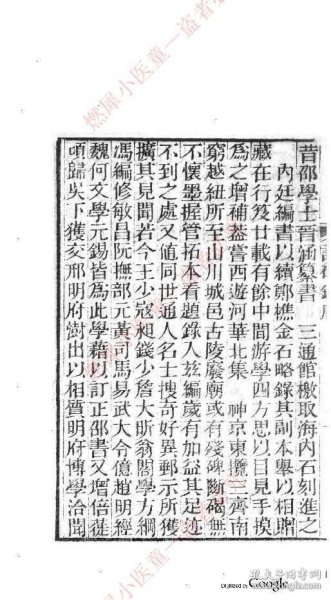 昔邵學士晉涵纂書　三通館檄取海內石刻進之
內廷編書以續鄭樵金石略錄其副本舉以相贈
藏在行笈廿載有餘中間游學四方思以目見手摸
為之增補葢嘗西遊河華北集　神京東攬三齊南
窮越紐所至山川城邑古陵廢廟或有殘碑斷碣無
不懷墨握管拓本看題錄入兹編歲有加益其足迹
不到之處又値同世通人名士搜奇好異郵示所獲
擴其見聞若今王少寇昶錢少詹大昕翁閣學方綱
馮編修敏昌阮撫部元黃司馬易武大令億趙明經
魏何文學元錫皆為此學藉以訂正邵書又增倍蓰
頃歸吳下獲交邢明府澍出以相質明府博學洽聞
燃犀小医童一盗者
Digitized by Google